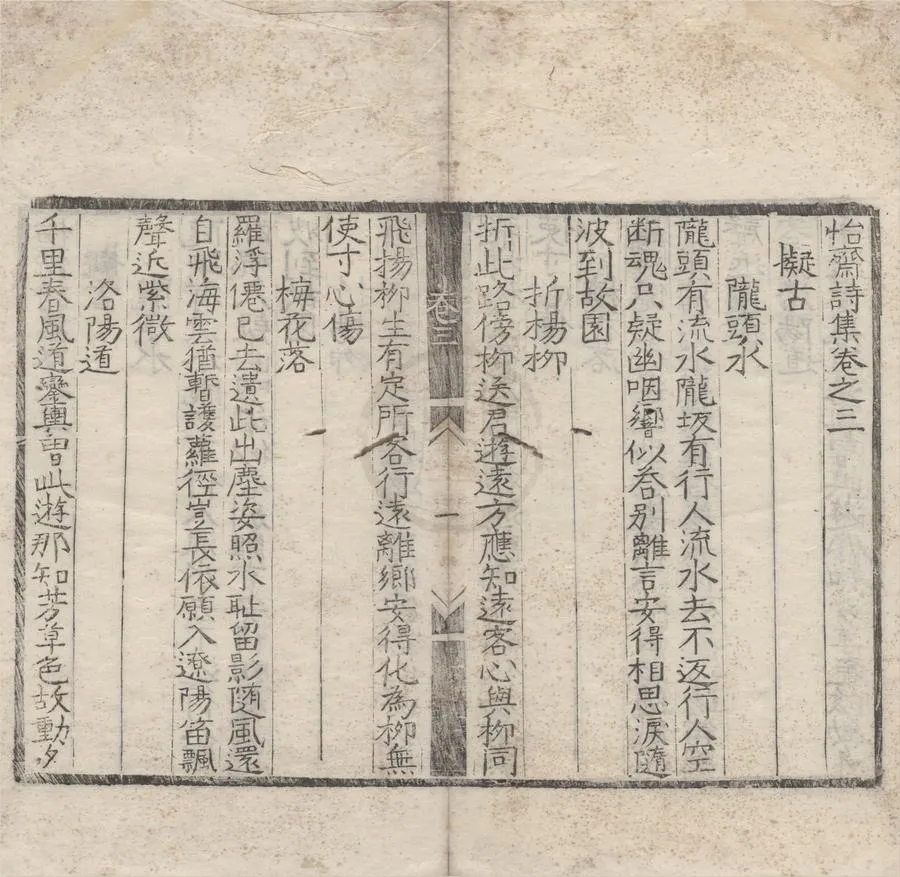 怡齋詩集卷之三
擬古
隴頭水
隴頭有流水隴坂有行人流水去不返行人空
断魂只疑幽咽響似答別離言安得相思淚隨
波到故園
折楊柳
折此路傍柳送君遊遠方應知遠客心與柳同
卷三
一
飛揚柳生有定所客行遠離鄉安得化為柳無
使寸心傷
梅花落
羅浮僊已去遺此出塵姿照水耻留影随風還
自飛海雲猶暫護蘿徑豈長依願入遼陽笛飄
聲近紫微
洛陽道
千里春風道鑾輿曽此遊那知芳草色故動